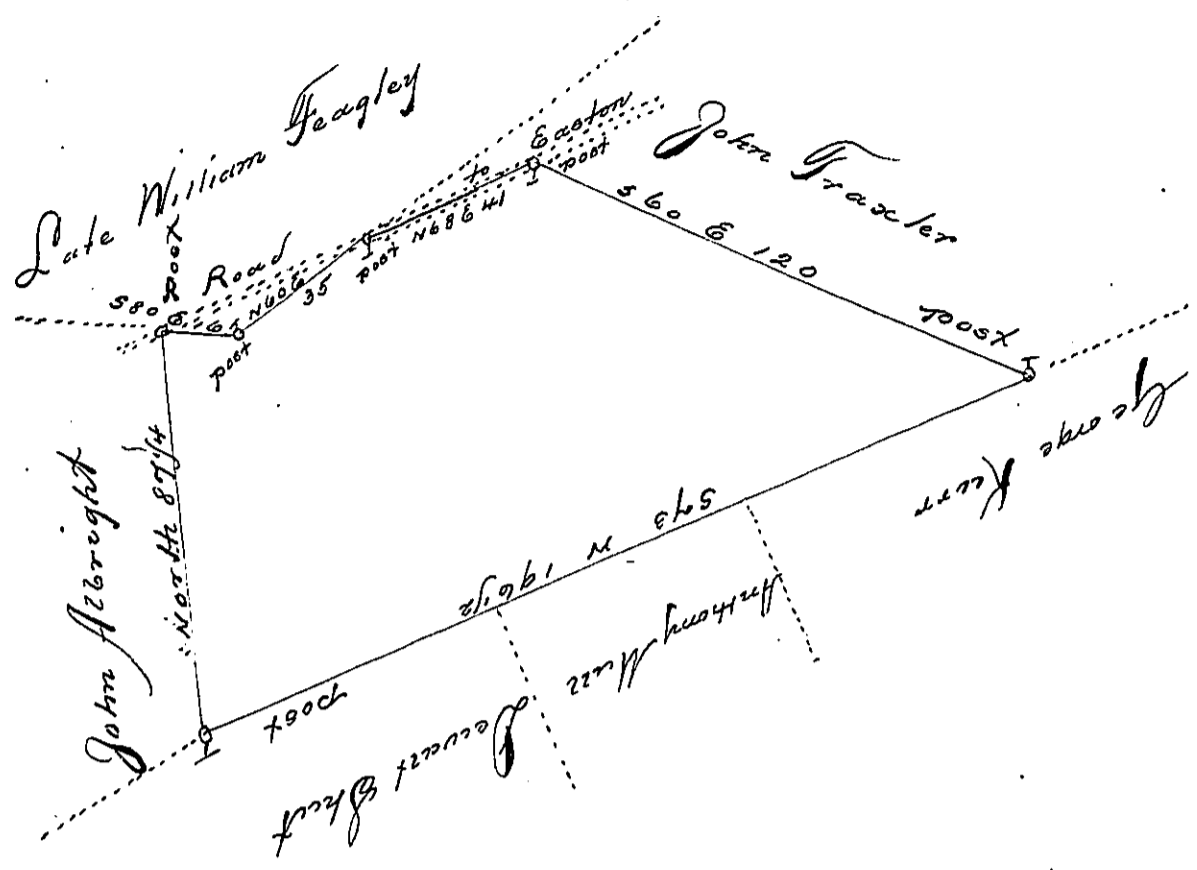 Late William Feagley
Road to Easton
John Traxler
S 80 E
post
post
N 60 E 35
post
N 68 E 41
post
S 60 E 120
post
George Kurr
S 73 W 196 1/2
Anthony Mull
Dewalt Shut
post
John Allbright
North 87 1/4